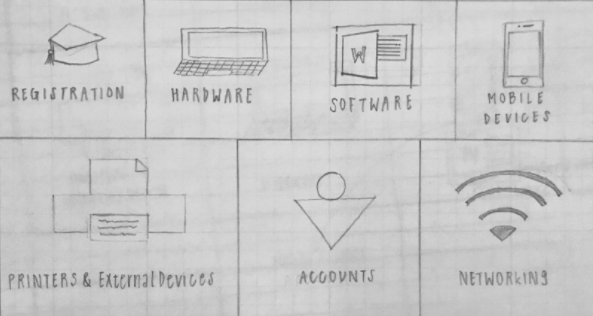 REGISTRATION
HARDWARE
W
SOFTWARE
MOBILE
DEVICES
PRINTERS & External Devices
ACCOUNTS
NETWORKING